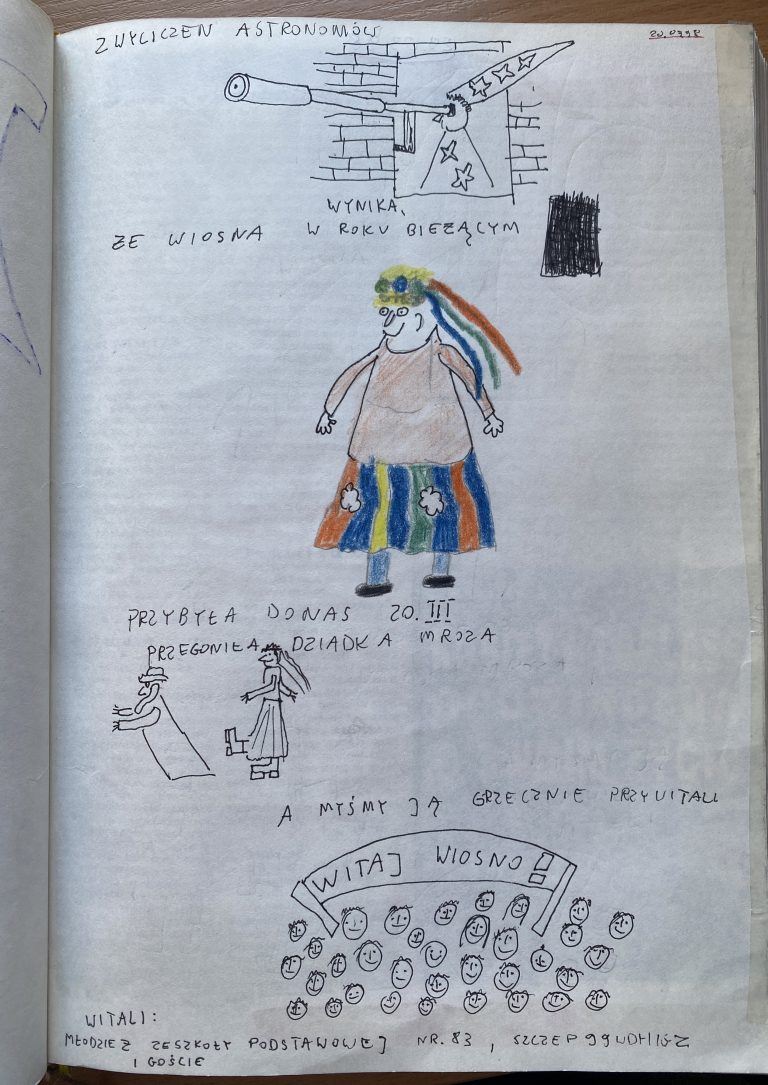 Z WYLICZEŃ ASTRONOMÓW
WYNIKA,
ZE WIOSNA W ROKU BIEZĄCYM
PRZYBYŁA DO NAS 20. III
PRZEGONIŁA DZIADKA MROZA
A MYŚMY JĄ GRZECZNIE PRZYWITALI
WITAJ WIOSNO!
WITALI:
MŁODZIEZ ZE SZKOŁY PODSTAWOWEJ NR. 83, SZCZEP 99 UDH I GZ
I GOŚCIE